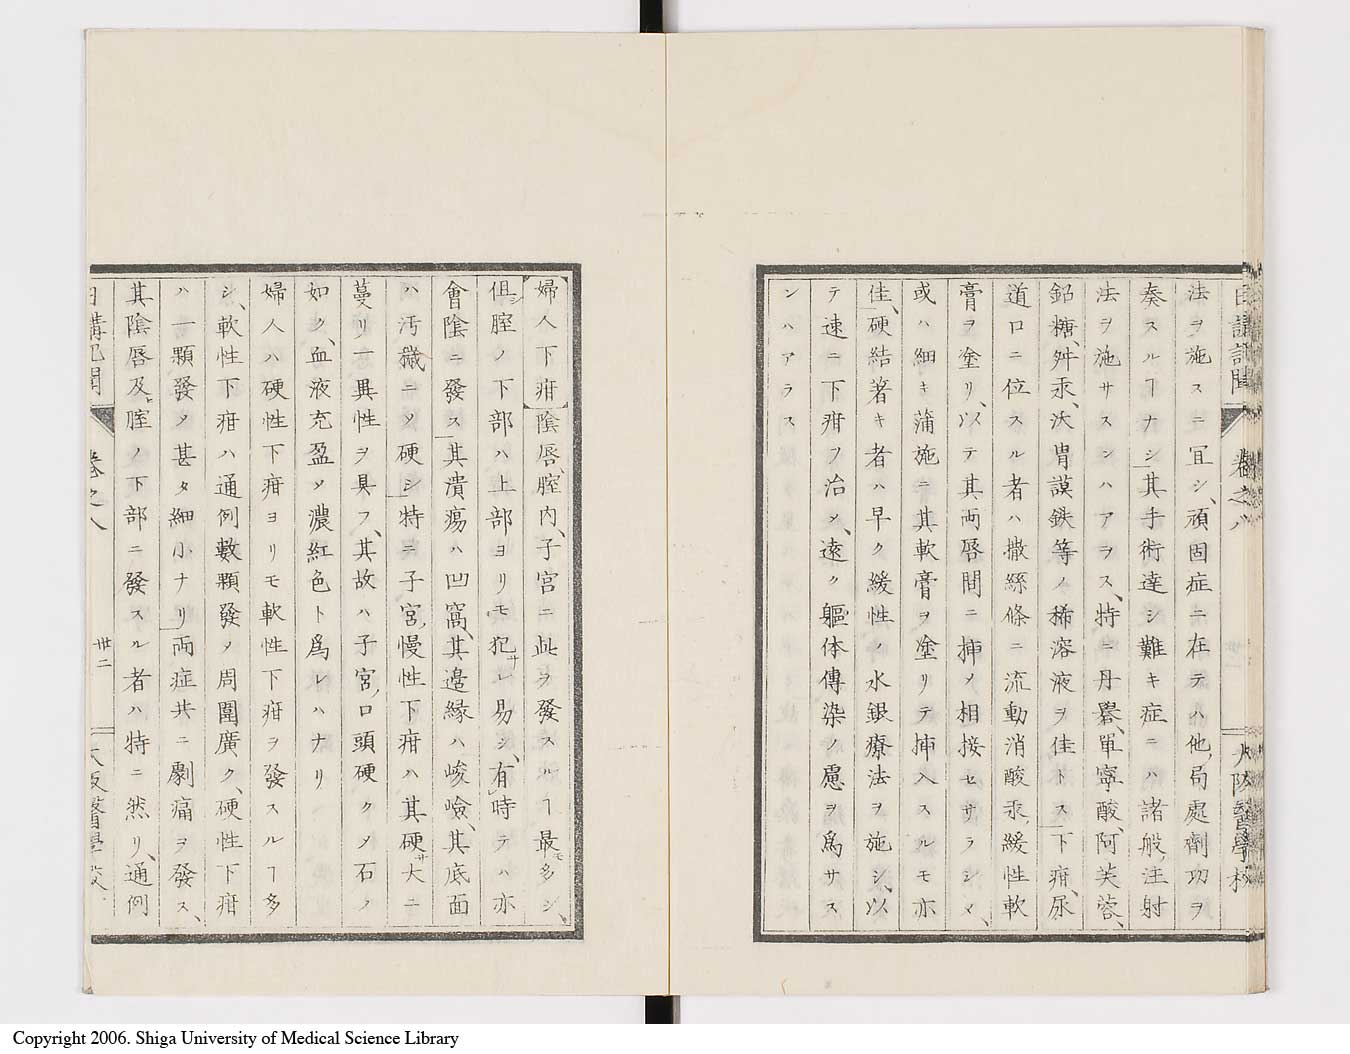 日講記聞 卷之八 大阪醫學校
法ヲ施スニ宜シ、頑固症ニ在テハ他局處劑功ヲ
奏スルヿナシ其手術達シ難キ症ニハ諸般注射
法ヲ施サスンハアラス、特ニ丹礬、單寧酸、阿芙蓉、
鉛糖、舛汞、沃冑謨鉄等ノ稀溶液ヲ佳トス下疳、尿
道口ニ位スル者ハ撒絲條ニ流動消酸汞、緩性軟
膏ヲ塗リ、以テ其両唇間ニ挿メ相接セサラシメ、
或ハ細キ蒲施ニ其軟膏ヲ塗リテ挿入スルモ亦
佳、硬結著キ者ハ早ク緩性ノ水銀療法ヲ施シ、以
テ速ニ下疳フ治シ、遠ク軀体傳染ノ慮ヲ為サス
ンハアラス
婦人下疳 陰唇、腟内、子宮ニ此ヲ發スルヿ最モ多シ、
俱シ腟ノ下部ハ上部ヨリモ犯サレ易シ、有時テハ亦
會陰ニ發ス其潰瘍ハ凹窩、其邉緣ハ峻嶮、其底面
ハ汚穢ニソ硬シ特ニ子宮慢性下疳ハ其硬サ大ニ
蔓リ一異性ヲ具フ、其故ハ子宮口頭硬クメ石ノ
如ク、血液充盈ソ濃紅色ト爲レハナリ
婦人ハ硬性下疳ヨリモ軟性下疳ヲ發スルヿ多
シ、軟性下疳ハ通例數顆發ソ周圍廣ク、硬性下疳
ハ一顆發ソ甚タ細小ナリ両症共ニ劇痛ヲ發ス、
其陰唇及ヒ腟ノ下部ニ發スル者ハ特ニ然リ、通例
日講記聞 卷之八 丗二 大阪醫學校
Copyright 2006. Shiga University of Medical Science Library